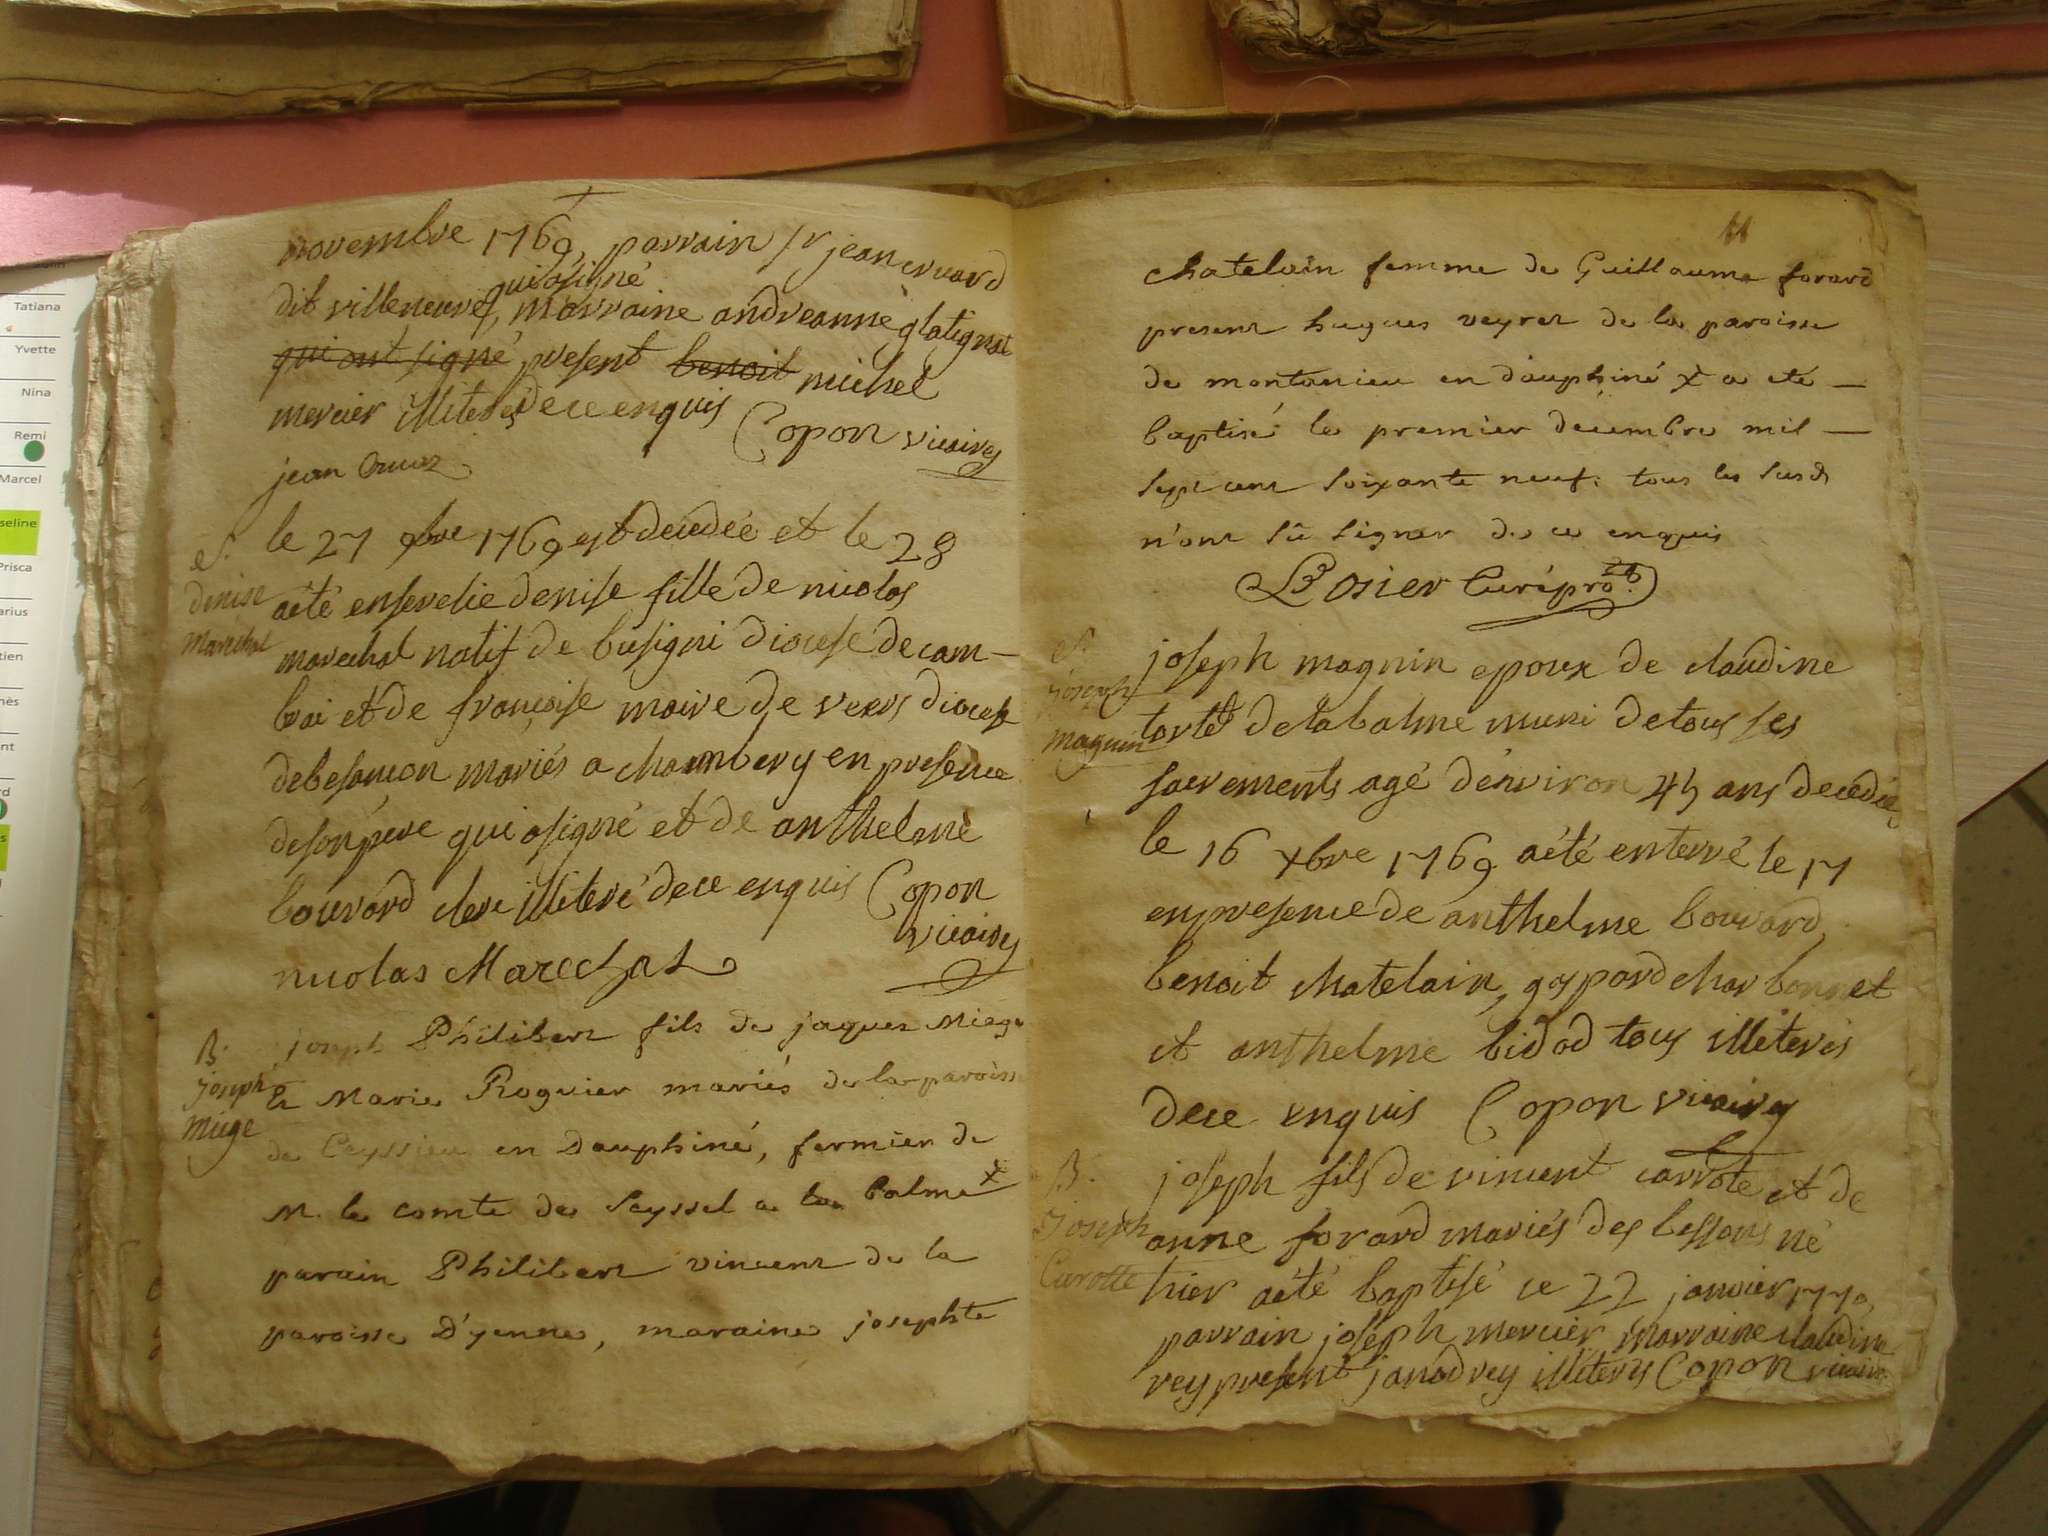 Tatiana
Yvette
Nina
Remi
Marcel
Prisca
novembre 1769, parrain sr jean cruard
qui a signé
dit villeneuve, marraine andreanne glatignat
qui ont signé present benoit michel
mercier illiterés de ce enquis Copon vicaire
jean
S.
denise
marechal
le 27 9bre 1769 est decedée et le 28
a été ensevelie denise fille de nicolas
marechal natif de busigni diocese de cam-
brai et de françoise maire de vers diocese
de besançon mariés a chambery en presence
de son pere qui a signé et de anthelme
bouvard clerc illiteré de ce enquis Copon
vicaire
nicolas Marechal
B.
joseph
miege
joseph Philibert fils de jaques Miege
& Marie Roguier mariés de la paroisse
de Ceyssieu en Dauphiné, fermier de
M. le comte de Seyssel a la balme x
parain Philibert vincent de la
paroisse D'yenne, maraine josephte
11
chatelain femme de Guillaume forard
present hugues veyret de la paroisse
de montanieu en dauphiné x a eté —
baptisé le premier decembre mil —
sept cent soixante neuf. tous les susds
n'ont sû signer de ce enquis
Rosier Curé
S.
joseph
magnin
joseph magnin epoux de claudine
de la balme muni de tous ses
sacrements agé d'environ 45 ans decedé
le 16 xbre 1769 a été enterré le 17
en presence de anthelme bouvard,
benoit chatelain, gaspard charbonnet
et anthelme bidod tous illiterés
de ce enquis Copon vicaire
B.
joseph
Carotte
joseph fils de vincent carrote et de
anne forard mariés des bessons né
hier a été baptisé ce 22 janvier 1770,
parrain joseph mercier marraine claudine
rey present janod rey illiterés Copon vicaire